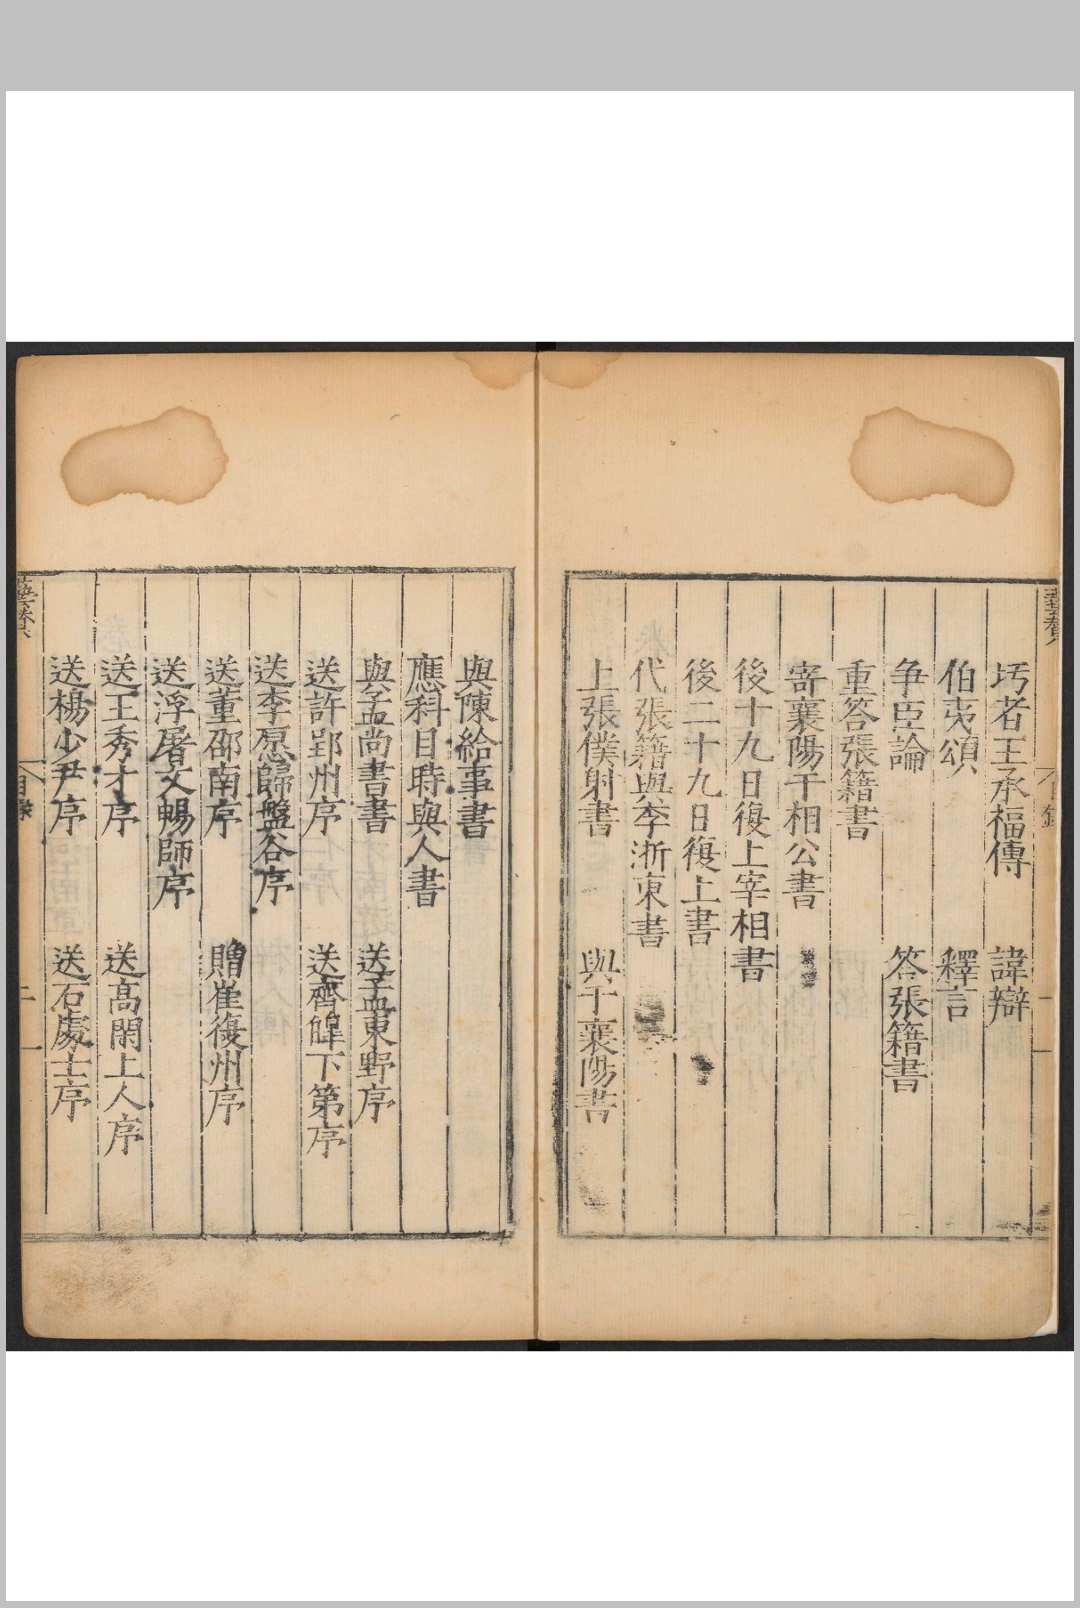 圬者王承福傳　諱辯
伯夷頌　釋言
争臣論　答張籍書
重答張籍書
寄襄陽于相公書
後十九日復上宰相書
後二十九日復上書
代張籍與李浙東書
上張僕射書　與于襄陽書
與陳給事書
應科目時與人書
與孟尚書書　送孟東野序
送許郢州序　送齊皥下第序
送李愿歸盤谷序
送董邵南序　贈崔復州序
送浮屠文暢師序
送王秀才序　送高閑上人序
送楊少尹序　送石處士序
目録